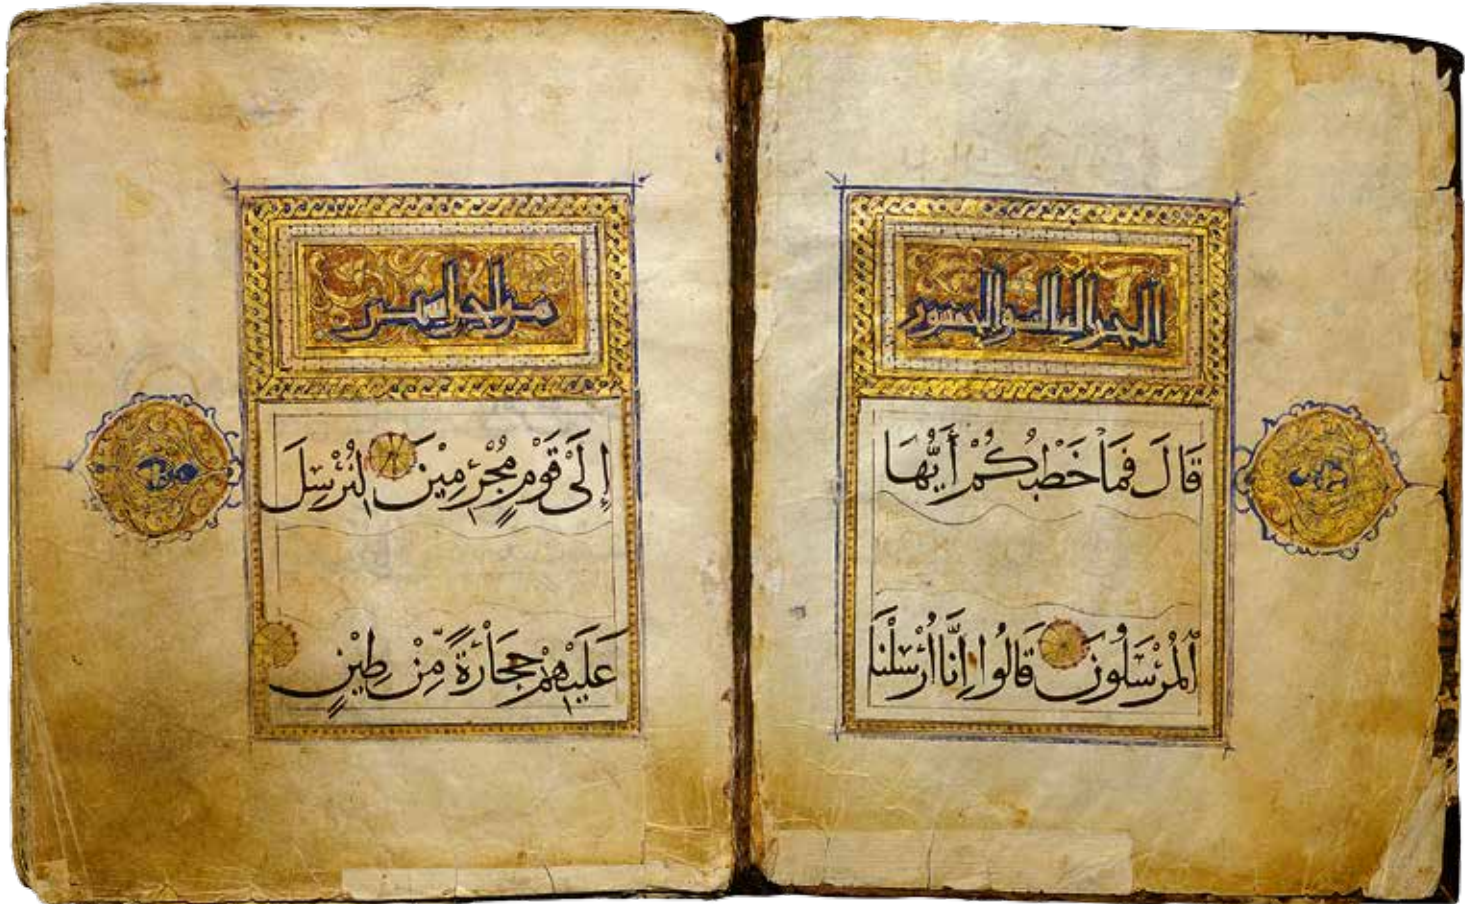 الجز السابع والعشرون
قَالَ فَمَا خَطْبُكُمْ أَيُّهَا
ٱلْمُرْسَلُونَ قَالُوا إِنَّا أُرْسِلْنَا
إِلَى قَوْمٍ مُجْرِمِيْنَ لِنُرْسِلَ
عَلَيْهِمْ حِجَارَةً مِّنْ طِيْنٍ